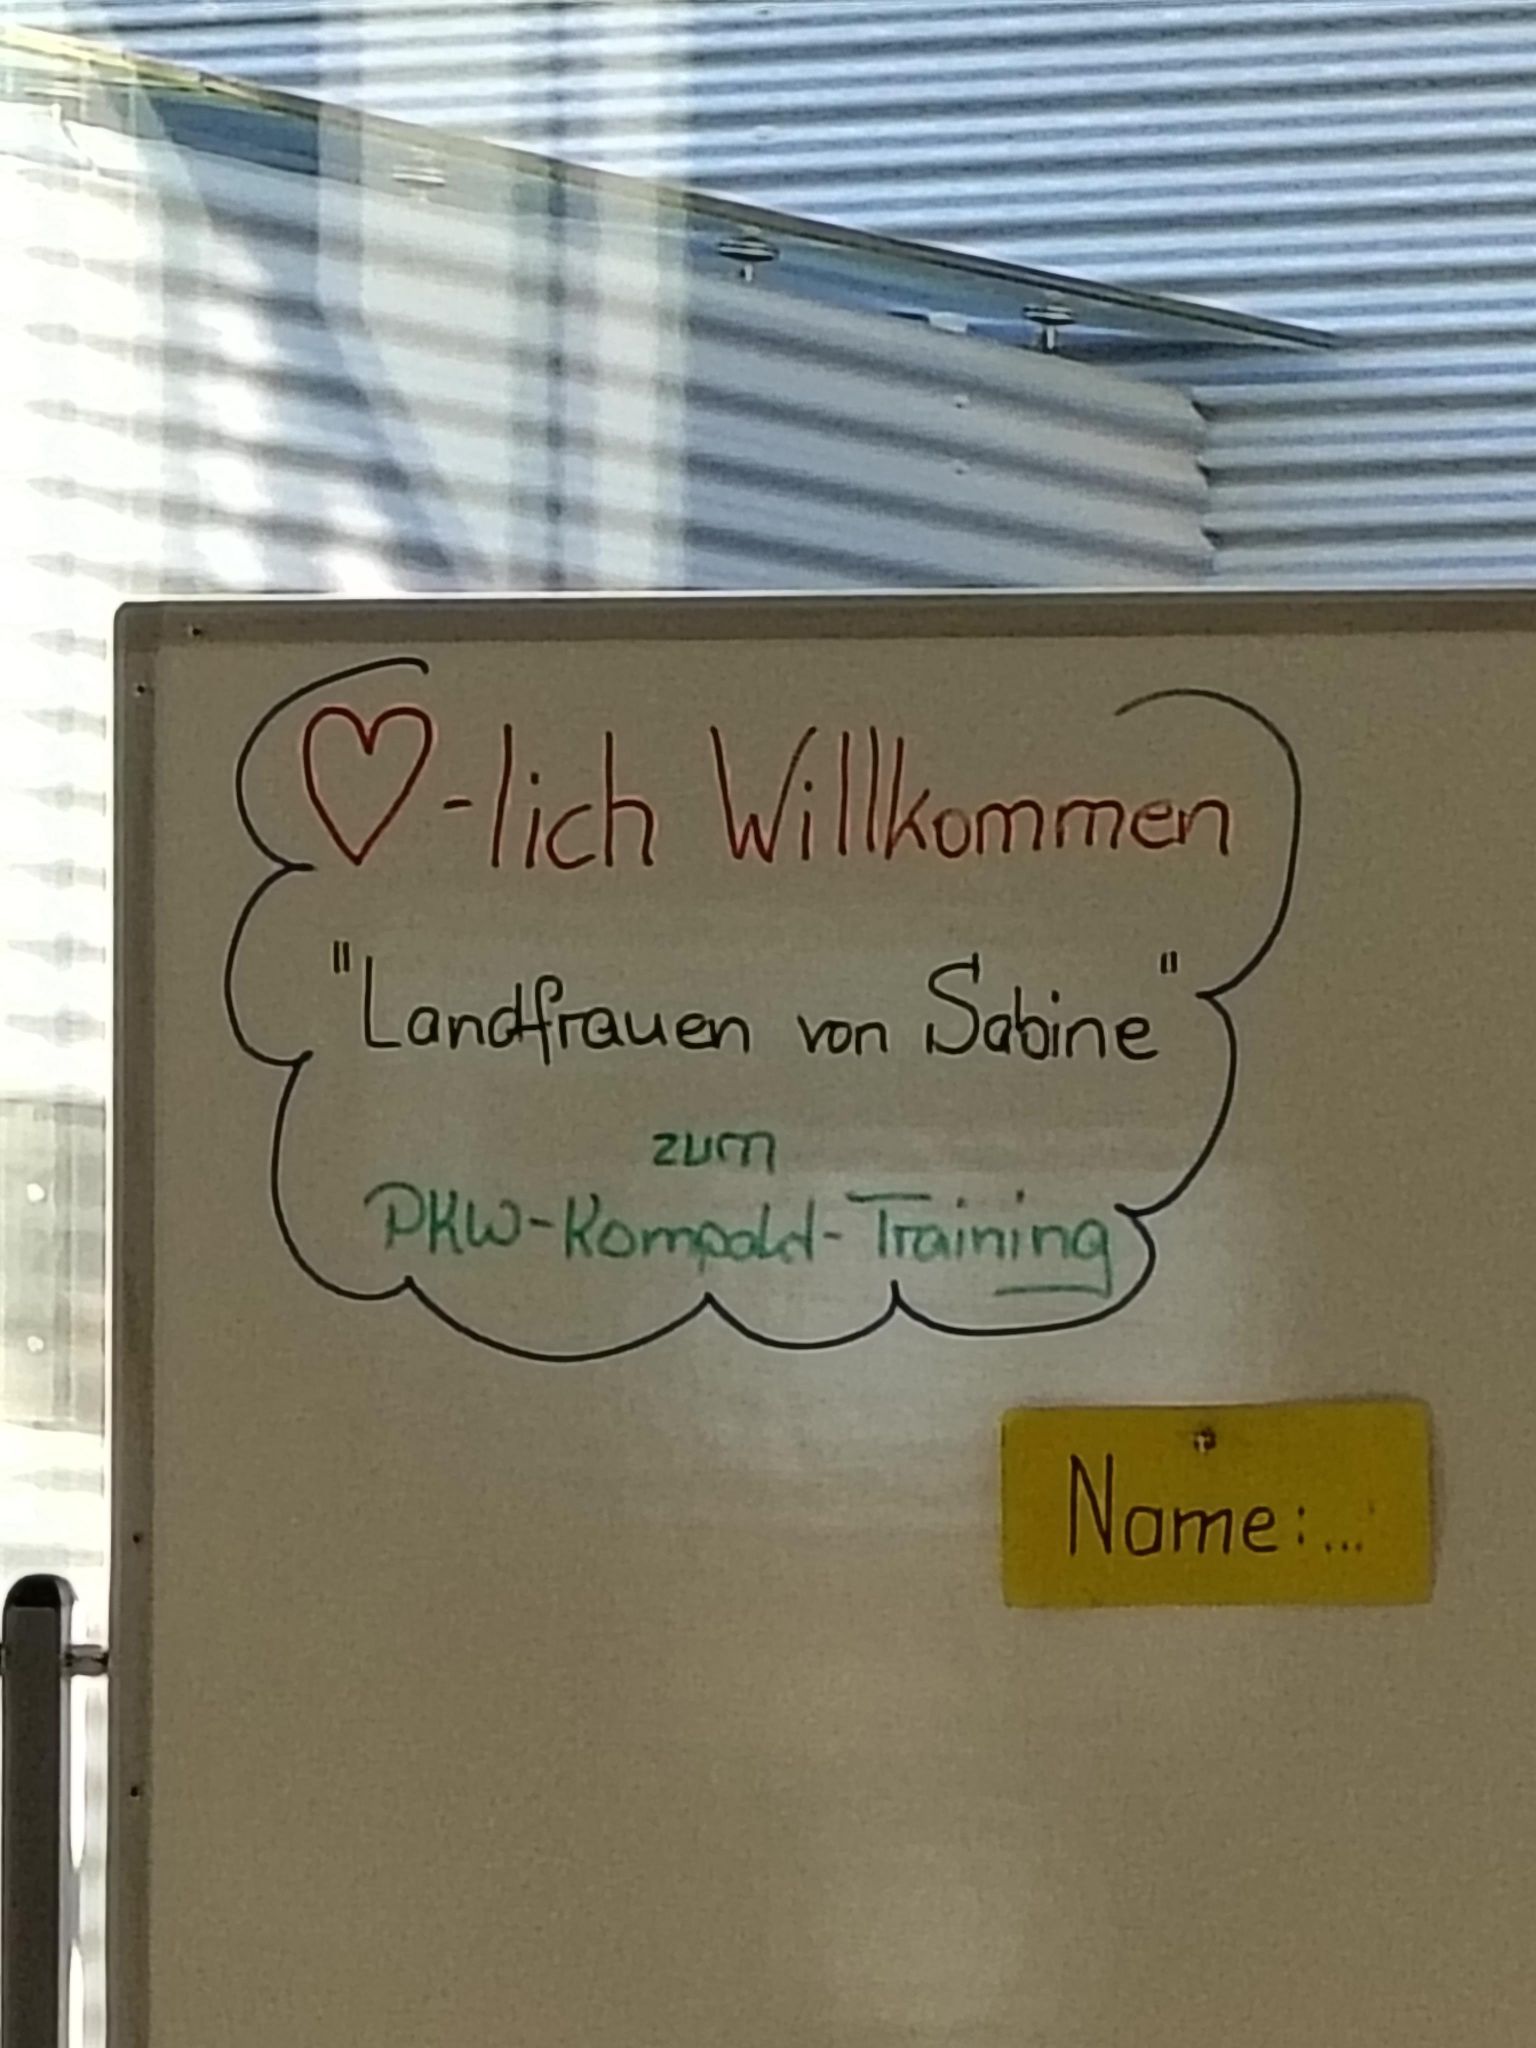 ♡-lich Willkommen
"Landfrauen von Sabine"
zum
PKW-Kompakt-Training
Name:...